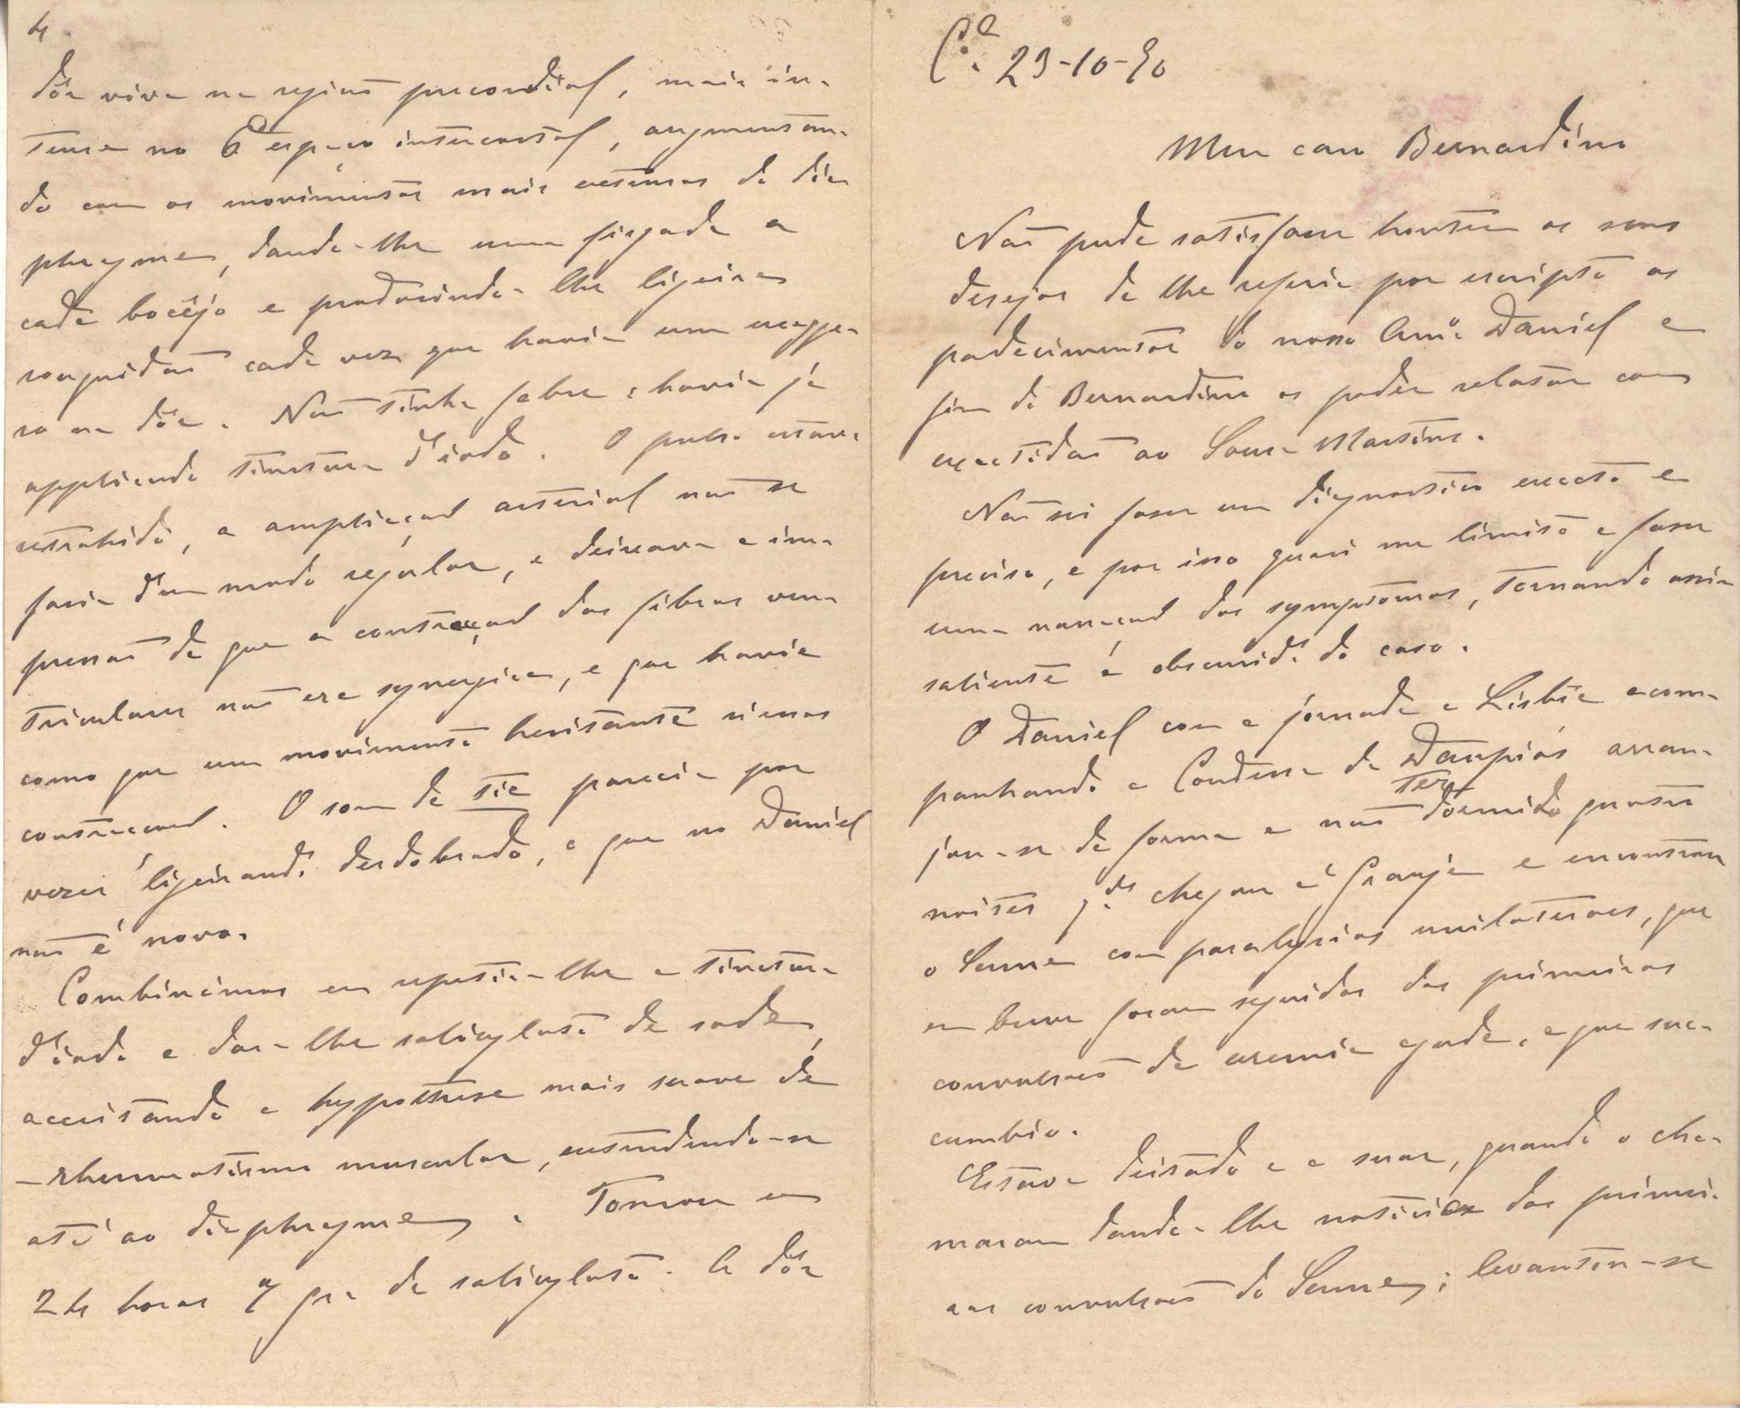 4
dôr viva na região precordial, mais in-
tensa no 6º espaço intercostal, augmentan-
do com os movimentos mais extensos do dia-
phragma, dando-lhe uma fisgada a
cada bocêjo e produzindo-lhe ligeira
cada vez que havia uma exagge-
ro na dôr. Não tinha febre e havia já
applicado tinctura d'iodo. O pulso estava
retrahido, a ampliação arterial não se
fazia d'um modo regular, e deixava a im-
pressão de que a contracção das fibras ven-
triculares não era synergica, e que havia
como que um movimento hesitante n'essas
contracções. O som de tic parecia por
vezes ligeiramte desdobrado, o que no Daniel
não é novo.
Combinámos em repetir-lhe a tinctura
d'iodo e dar-lhe salicylato de soda,
acceitando a hypothese mais suave de
-rheumatismo muscular, extendendo-se
até ao diaphragma. Tomou em
24 horas 7 gr. de salicylato. A dôr
Cª. 29-10-90
Meu caro Bernardino
Não pude satisfazer hontem os seus
desejos de lhe referir por escripto os
padecimentos do nosso Amº. Daniel a
fim do Bernardino os poder relatar com
exactidão ao Sousa Martins.
Não sei fazer um diagnostico exacto e
preciso, e por isso quasi me limito a fazer
uma narração dos symptomas, tornando assim
saliente a obscuride do caso.
O Daniel com a jornada a Lisboa acom-
panhando a Condessa de arran-
jou-se de forma a não ter dormido quatro
noites qdo. chegou á Granja e encontrou
o com paralysias unilateraes, que
em breve foram seguidas das primeiras
convulsões de uremia aguda, a que suc-
cumbiu.
Estava deitado e a suar, quando o cha-
maram dando-lhe noticia das primei-
ras convulsões do ; levantou-se